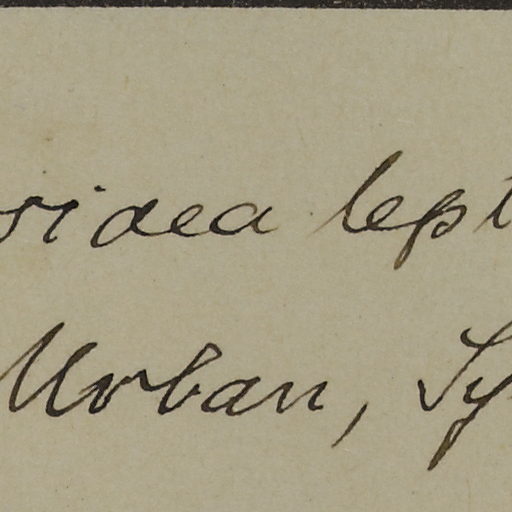 sidea lept
Urban, Sy